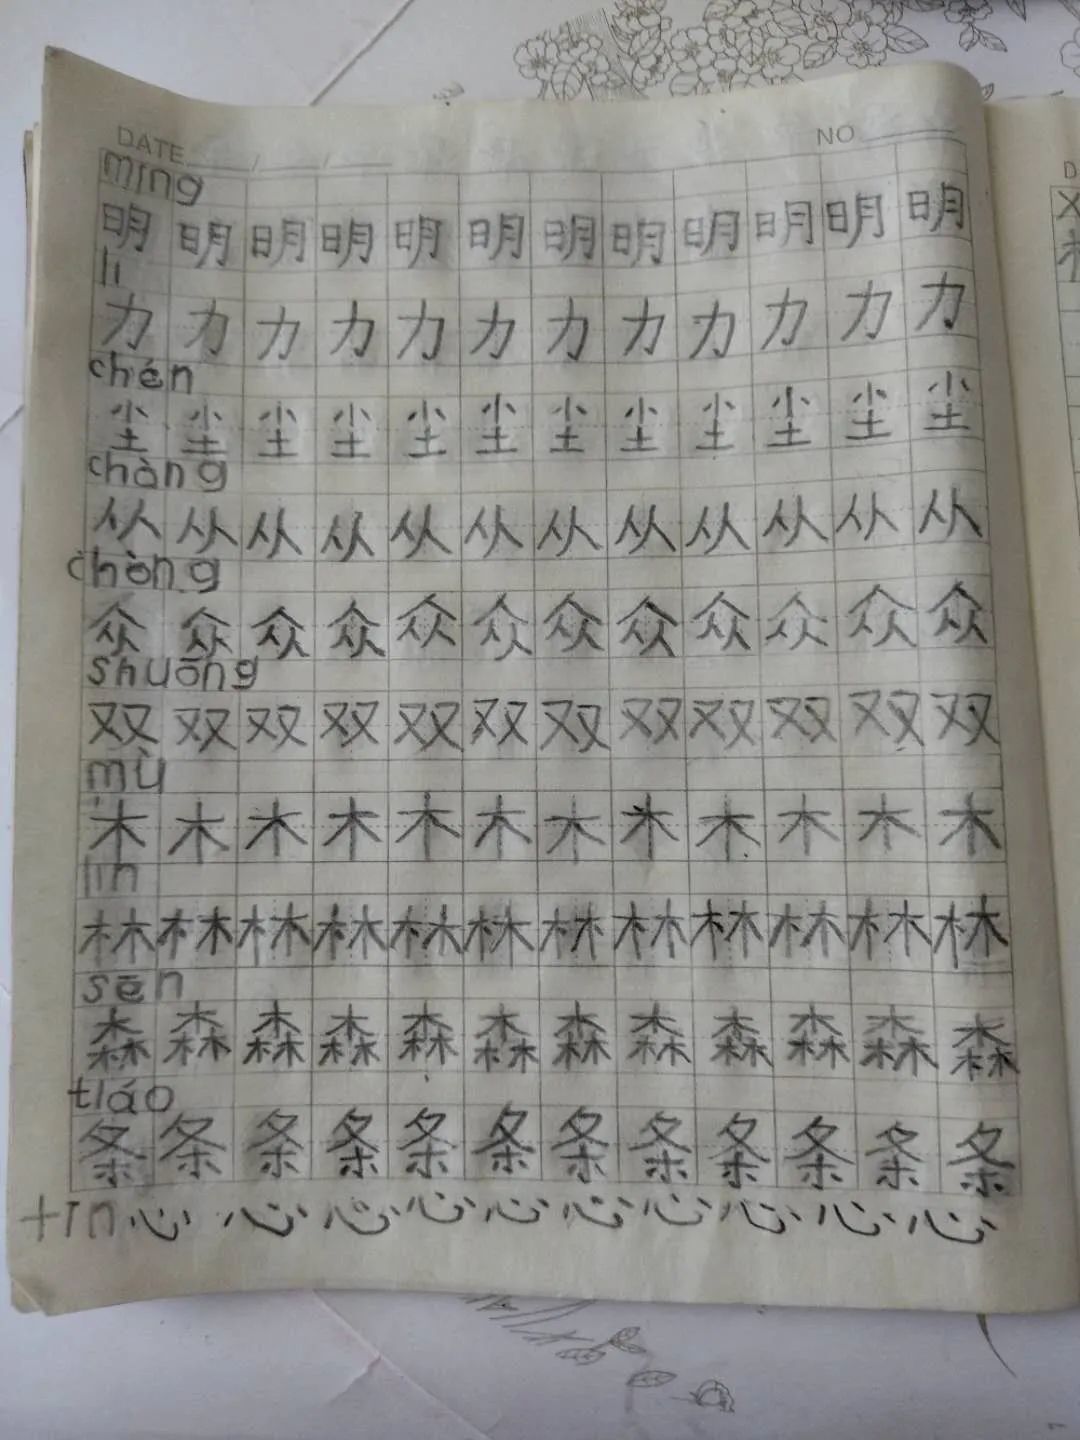 DATE / / NO
ming
明 明 明 明 明 明 明 明 明 明 明 明
li
力 力 力 力 力 力 力 力 力 力 力 力
chén
尘 尘 尘 尘 尘 尘 尘 尘 尘 尘 尘 尘
chàng
从 从 从 从 从 从 从 从 从 从 从 从
chòng
众 众 众 众 众 众 众 众 众 众 众 众
shuāng
双 双 双 双 双 双 双 双 双 双 双 双
mù
木 木 木 木 木 木 木 木 木 木 木 木
lin
林 林 林 林 林 林 林 林 林 林 林 林
sēn
森 森 森 森 森 森 森 森 森 森 森 森
tiáo
条 条 条 条 条 条 条 条 条 条 条 条
心 心 心 心 心 心 心 心 心 心